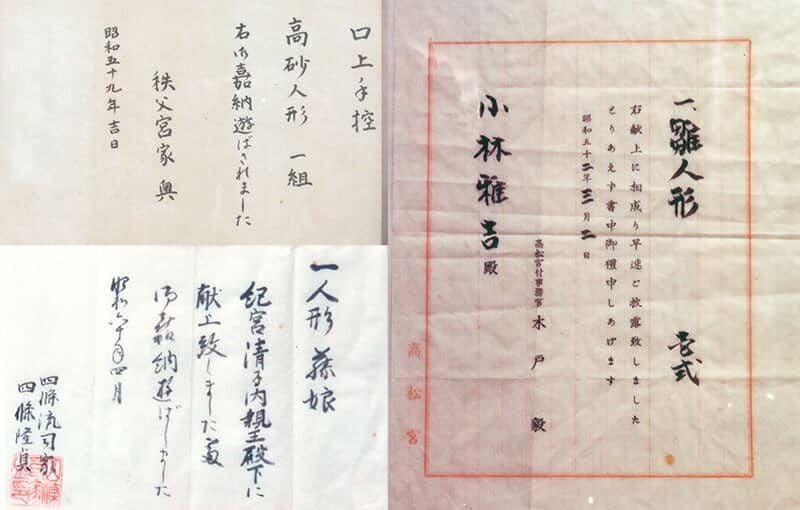 口上手控
高砂人形 一組
右御嘉納遊ばされました
秩父宮家 奥
昭和五十九年吉日
一人形 藤娘
紀宮清子内親王殿下に
献上致しました処
御嘉納遊ばしました
昭和六十年四月
四條流司家
四條隆貞
一雛人形 壱式
右献上に相成り早速ご披露致しました
とりあえず書中御禮申しあげます
昭和五十二年三月二日
高松宮付事務官 木戸 毅
小林雅吉殿
高松宮